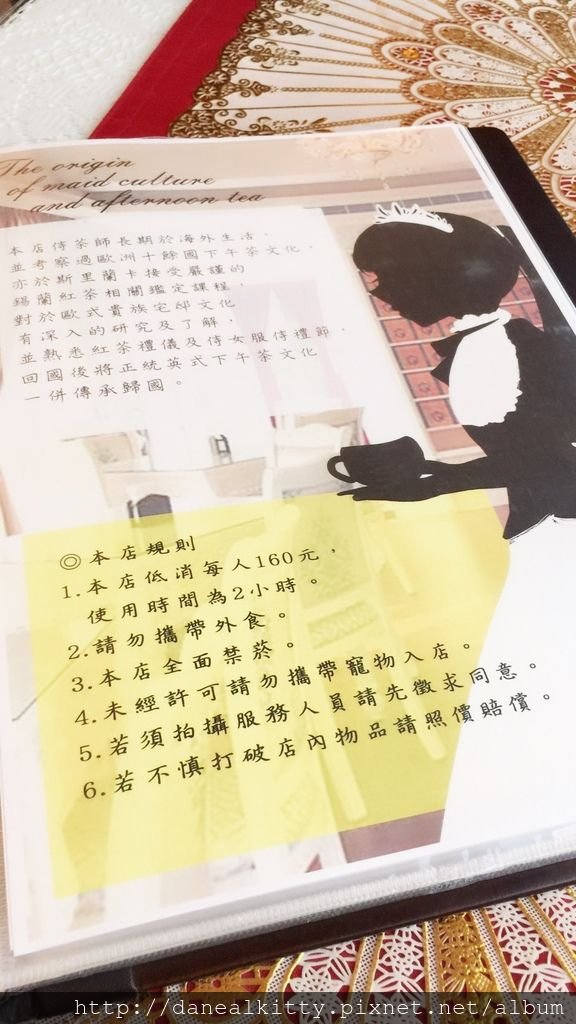 The origin
of maid culture
and afternoon tea
本店侍茶師長期於海外生活，
並考察過歐洲十餘國下午茶文化，
亦於斯里蘭卡接受嚴謹的
錫蘭紅茶相關鑑定課程，
對於歐式貴族宅邸文化
有深入的研究及了解，
並熟悉紅茶禮儀及侍女服侍禮節，
回國後將正統英式下午茶文化
一併傳承歸國。
◎本店規則
1.本店低消每人160元，
使用時間為2小時。
2.請勿攜帶外食。
3.本店全面禁菸。
4.未經許可請勿攜帶寵物入店。
5.若須拍攝服務人員請先徵求同意。
6.若不慎打破店內物品請照價賠償。
http://danealkitty.pixnet.net/album